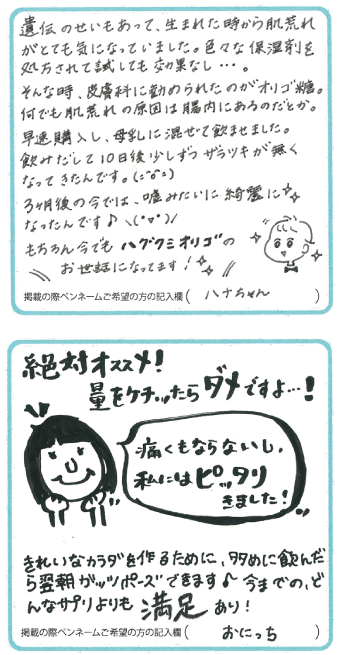 遺伝のせいもあって、生まれた時から肌荒れ
がとても気になっていました。色々な保湿剤を
処方されて試しても効果なし…。
そんな時、皮膚科に勧められたのがオリゴ糖。
何でも肌荒れの原因は腸内にあるのだとか。
早速購入し、母乳に混ぜて飲ませました。
飲みだして10日後少しずつザラツキが無く
なってきたんです。(ﾆﾟoﾟﾆ)
3ヶ月後の今では、嘘みたいに綺麗に
なったんです♪ \(^▽^)/
もちろん今でもハグクミオリゴの
お世話になってます!
掲載の際ペンネームご希望の方の記入欄( ハナちゃん )
絶対オススメ!
量をケチったらダメですよ…!
痛くもならないし、
私にはピッタリ
きました!
きれいなカラダを作るために、多めに飲んだ
ら翌朝ガッツポーズできます♪ 今までの、ど
んなサプリよりも 満足 あり!
掲載の際ペンネームご希望の方の記入欄( おにっち )